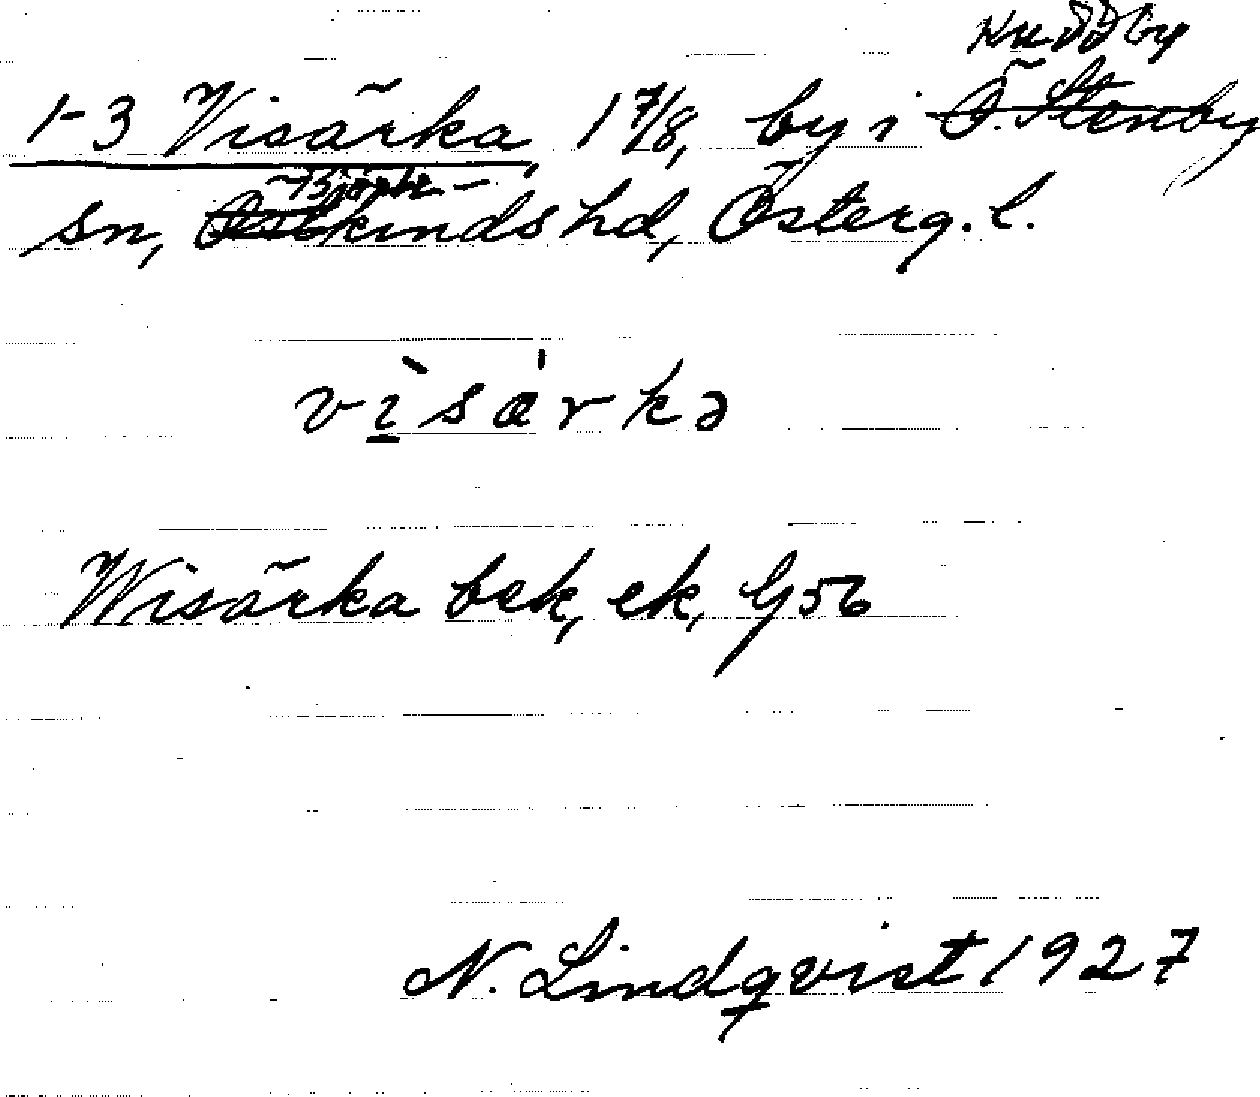 Kuddby
1-3 Visärka, 1 7/8, by i Ö. Stenby
Björke-
sn, Östkinds hd, Österg. l.
vìsárkə
Wisärka bek, ek, G56
N. Lindqvist 1927